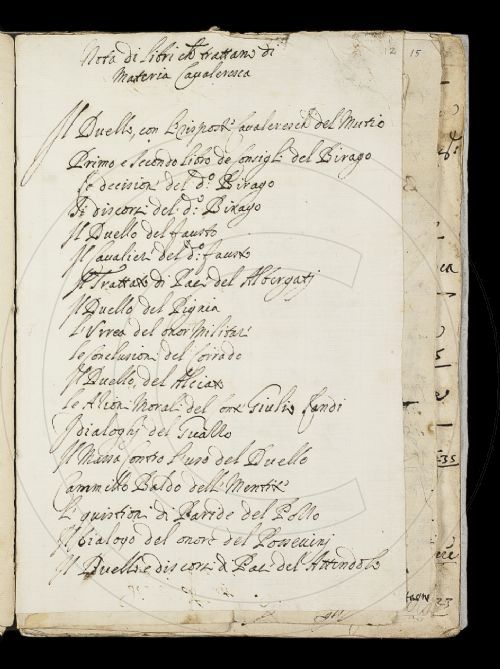 Nota di libri che trattano di
Materia Cavaleresca
12 15
Il Duello, con le risposte Cavaleresche del Mutio
Primo e secondo libro de consigli del Birago
Le decisioni del d.º Birago
Li discorsi del d.º Birago
Il Duello del fausto
Il Cavalier del d.º fausto
Il Trattato di Pace del Albergatj
Il Duello del Pignia
L'Urrea del onor Militar
le Conclusioni del Corrado
Il Duello, del Alciato
le Ationi Morali del Conte Giulio Landi
I dialoghj del Guazzo
Il Massa contro l'uso del Duello
Cammillo Baldo delle Mentite
Le quistioni di Paride del Pozzo
Il Dialogo del onore del Possevinj
Il Duello e discorsi di Pace del Attendolo
35
23